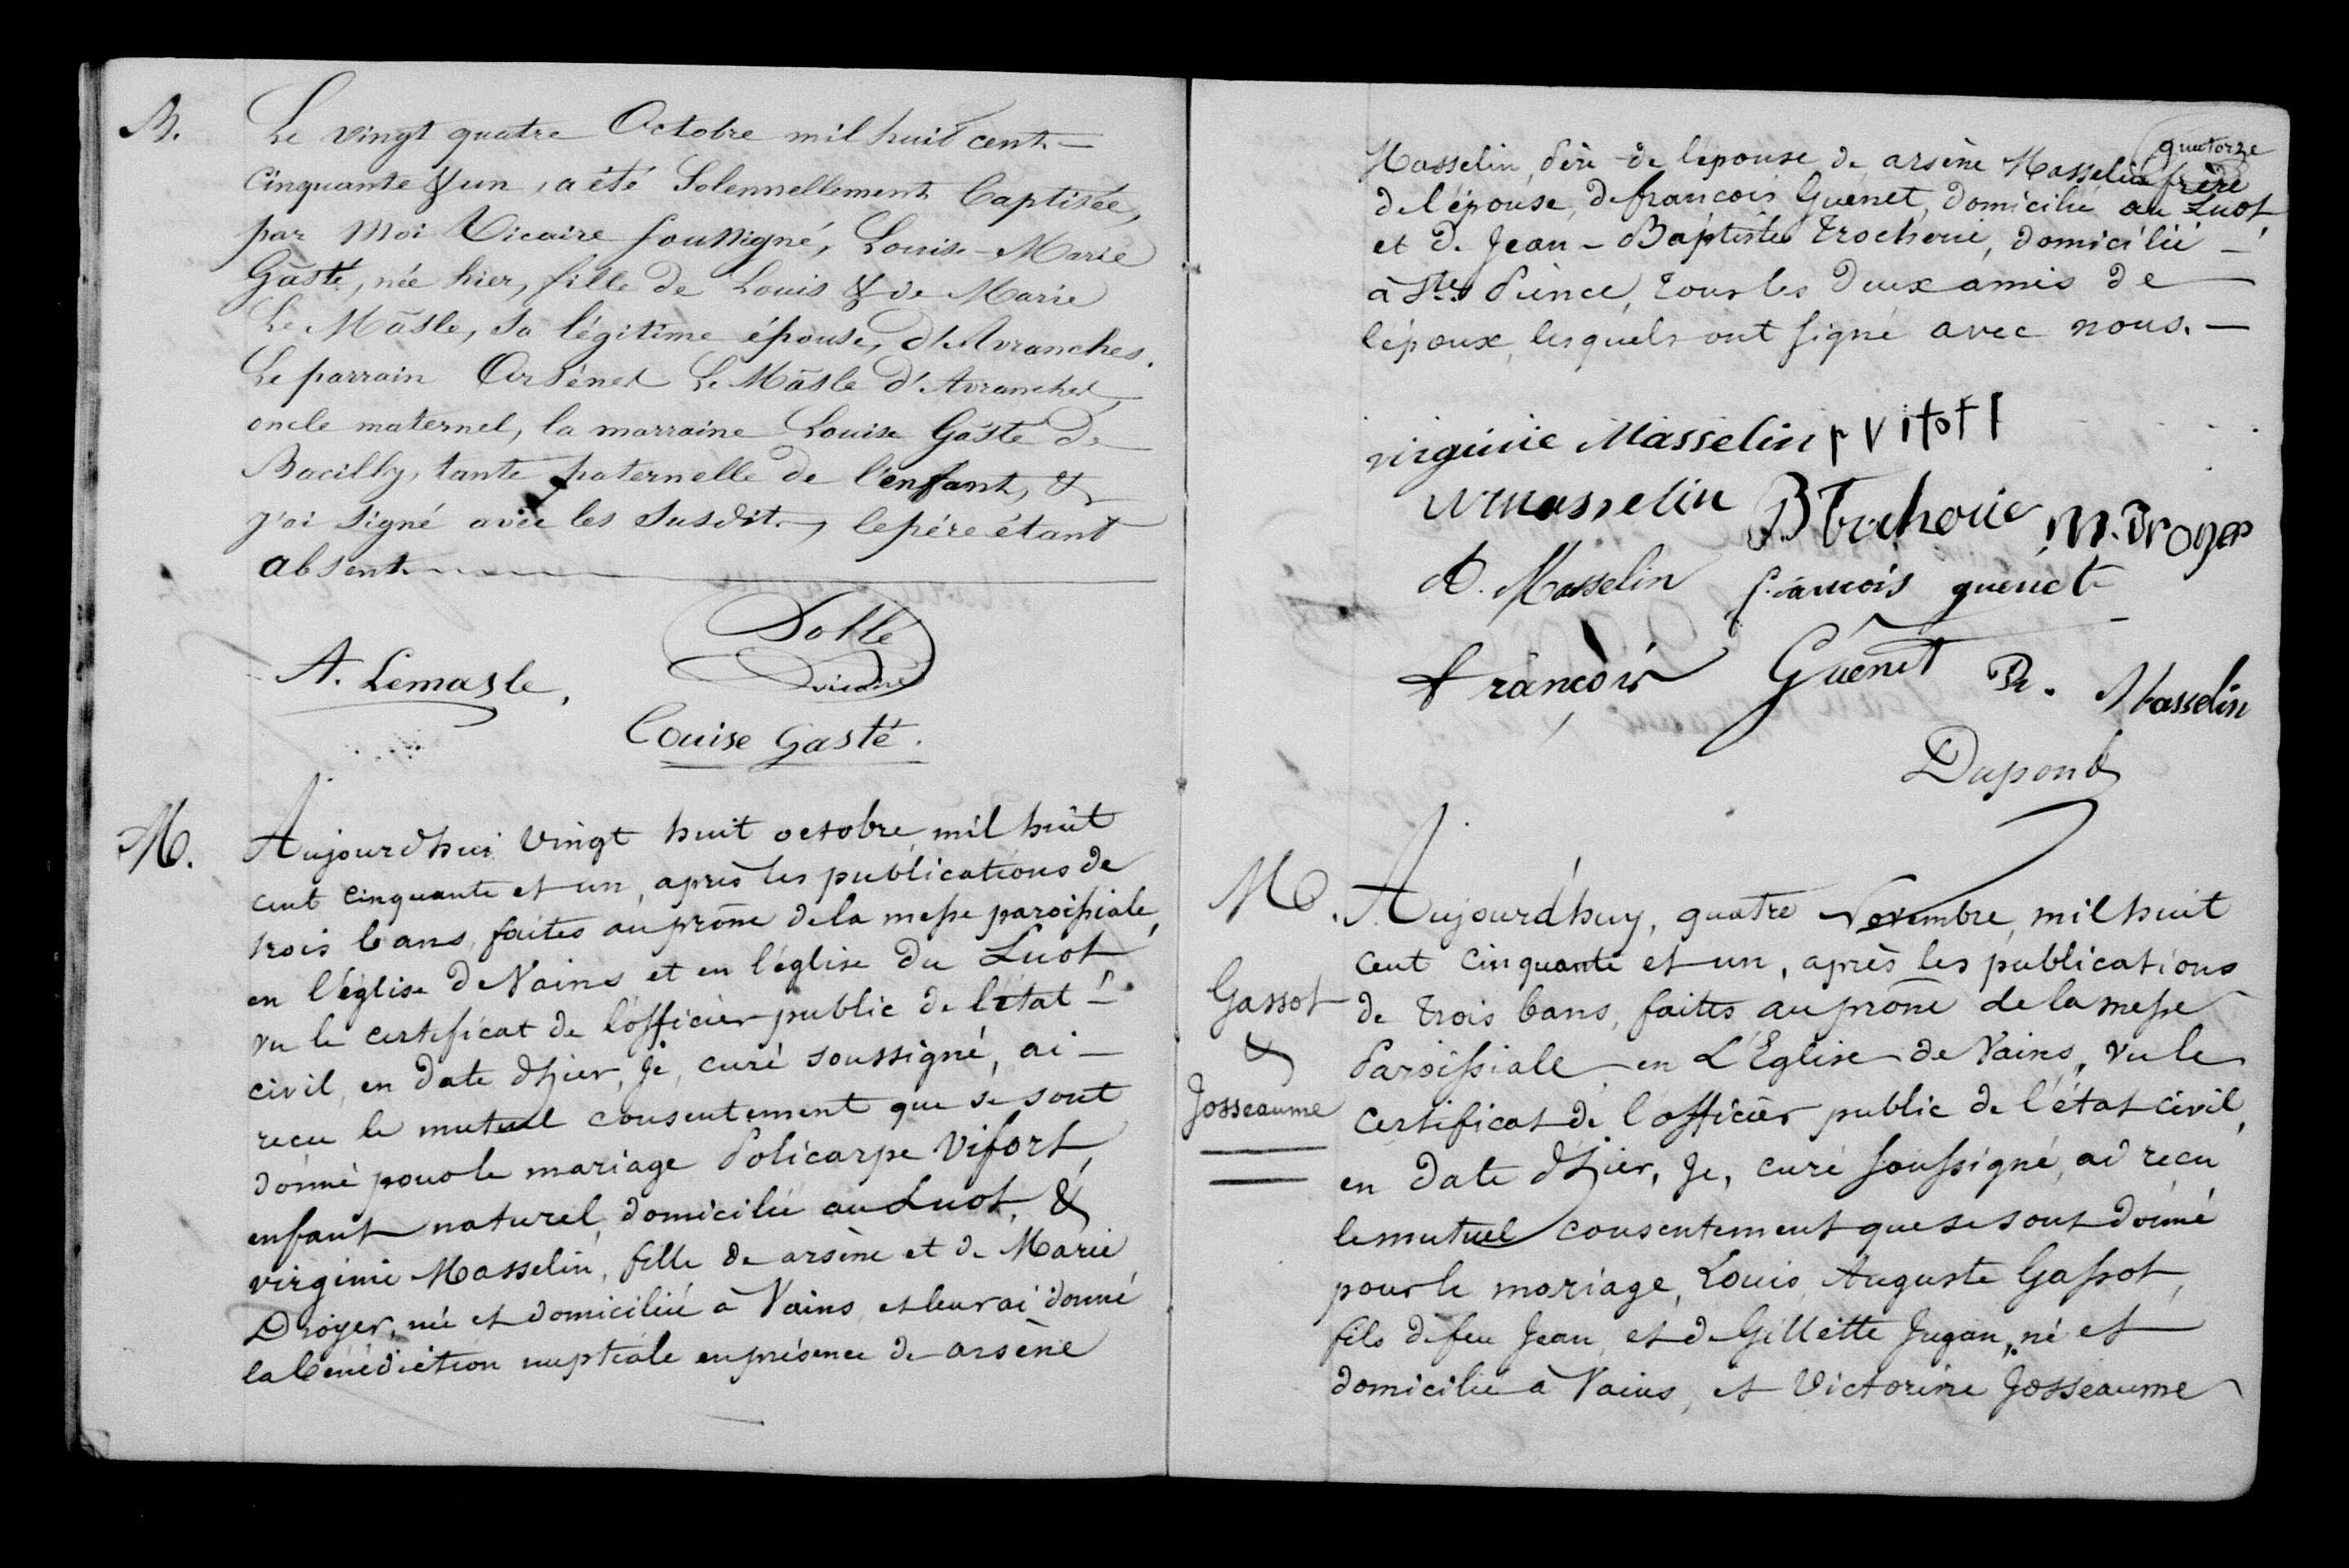 B.
Le vingt quatre Octobre mil huit cent
Cinquante & un, a été Solennellement baptisée,
par Moi Vicaire soussigné, Louise-Marie
Gâsté, née hier, fille de Louis & de Marie
Le Mâsle, sa légitime épouse, d'Avranches.
Le parrain Arsène Le Mâsle d'Avranches,
oncle maternel, la marraine Louise Gâsté de
Bacilly, tante paternelle de l'enfant, &
j'ai signé avec les susdits, le père étant
absent.
Dollé
vicaire
A. Lemasle,
Louise Gasté.
M.
Aujourdhui vingt huit octobre, mil huit
cent cinquante et un, après les publications de
trois bans, faites au prône de la messe paroissiale,
en l'église de Vains et en l'église du Luot,
vu le certificat de l'officier public de l'état
civil, en date d'hier, Je, curé soussigné, ai
reçu le mutuel consentement que se sont
donné pour le mariage Policarpe Vifort,
enfant naturel, domicilié au Luot, &
virginie Masselin, fille de arsène et de Marie
Droyer, née et domiciliée à Vains, et leur ai donné
la bénédiction nuptiale en présence de arsène
quatorze
Masselin, père de l'épouse, de arsène Masselin frère
de l'épouse, de françois Guenet, domicilié au Luot,
et de Jean-Baptiste Trocherie, domicilié
à Ste Pience, tous les deux amis de
l'époux, lesquels ont signé avec nous.
virginie Masselin p vitott
Masselin B Trocherie M. Droyer
A. Masselin francois guenet
françois Guenet Masselin
Dupont
M.
Gassot
&
Josseaume
Aujourd'huy, quatre Novembre, mil huit
cent cinquante et un, après les publications
de trois bans, faites au prône de la messe
Paroissiale en L'Eglise de Vains, vu le
certificat de l'officier public de l'état civil,
en date d'hier, Je, curé soussigné, ai reçu
le mutuel consentement que se sont donné
pour le mariage, Louis Auguste Gassot,
fils de feu Jean, et de Gillette Jugan, né et
domicilié à Vains, et Victorine Josseaume